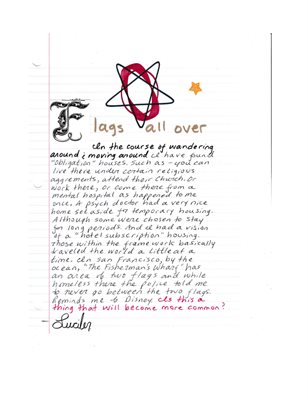 Flags all over
In the course of wandering
around & moving around I have found
"obligation" houses. Such as - you can
live there under certain religious
agreements, attend their church. Or
work there, or come there from a
mental hospital as happened to me
once, A psych doctor had a very nice
home set aside for temporary housing.
Although some were chosen to stay
for long periods. And I had a vision
of a "hotel subscription" housing.
Those within the framework basically
traveled the world a little at a
time. In San Francisco, by the
ocean, "The Fisherman's Wharf" has
an area of two flags and while
homeless there the police told me
to never go between the two flags.
Reminds me of Disney. Is this a
thing that will become more common?